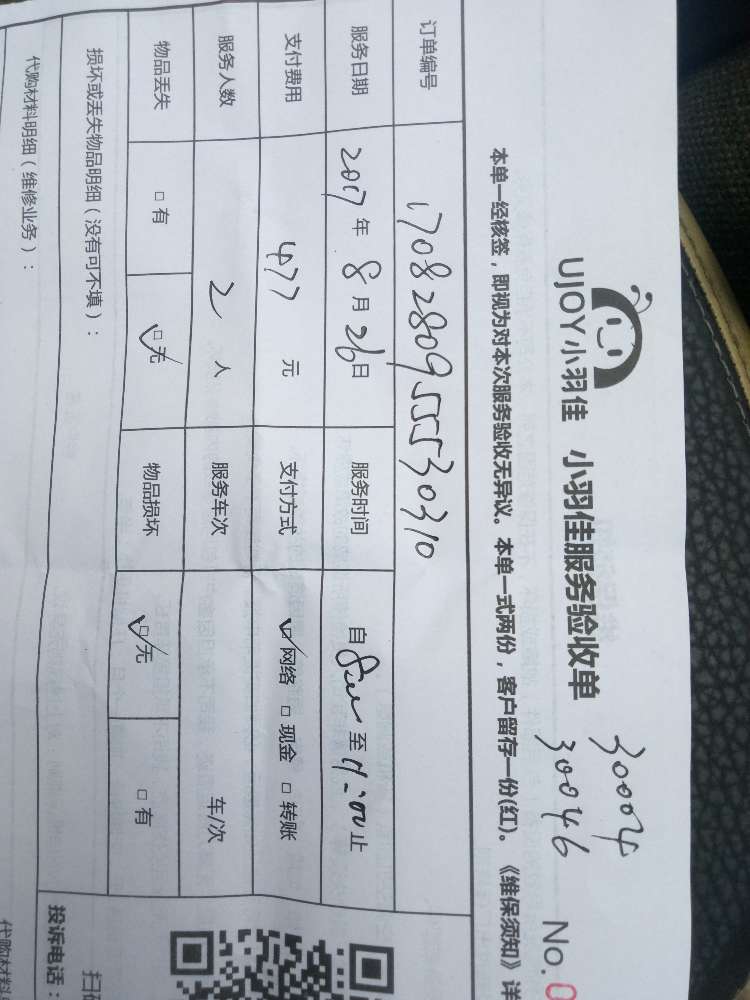 UJOY小羽佳 小羽佳服务验收单
30004
30046
No.0
本单一经核签，即视为对本次服务验收无异议。本单一式两份，客户留存一份(红)。《维保须知》详
订单编号 1708280955530310
服务日期 2017年8月26日 服务时间 自8:00至11:00止
支付费用 477元 支付方式 网络 现金 转账
服务人数 2人 服务车次 车/次
物品丢失 有 无 物品损坏 无 有
损坏或丢失物品明细（没有可不填）：
投诉电话：
扫
代购材料明细（维修业务）：
代购材料